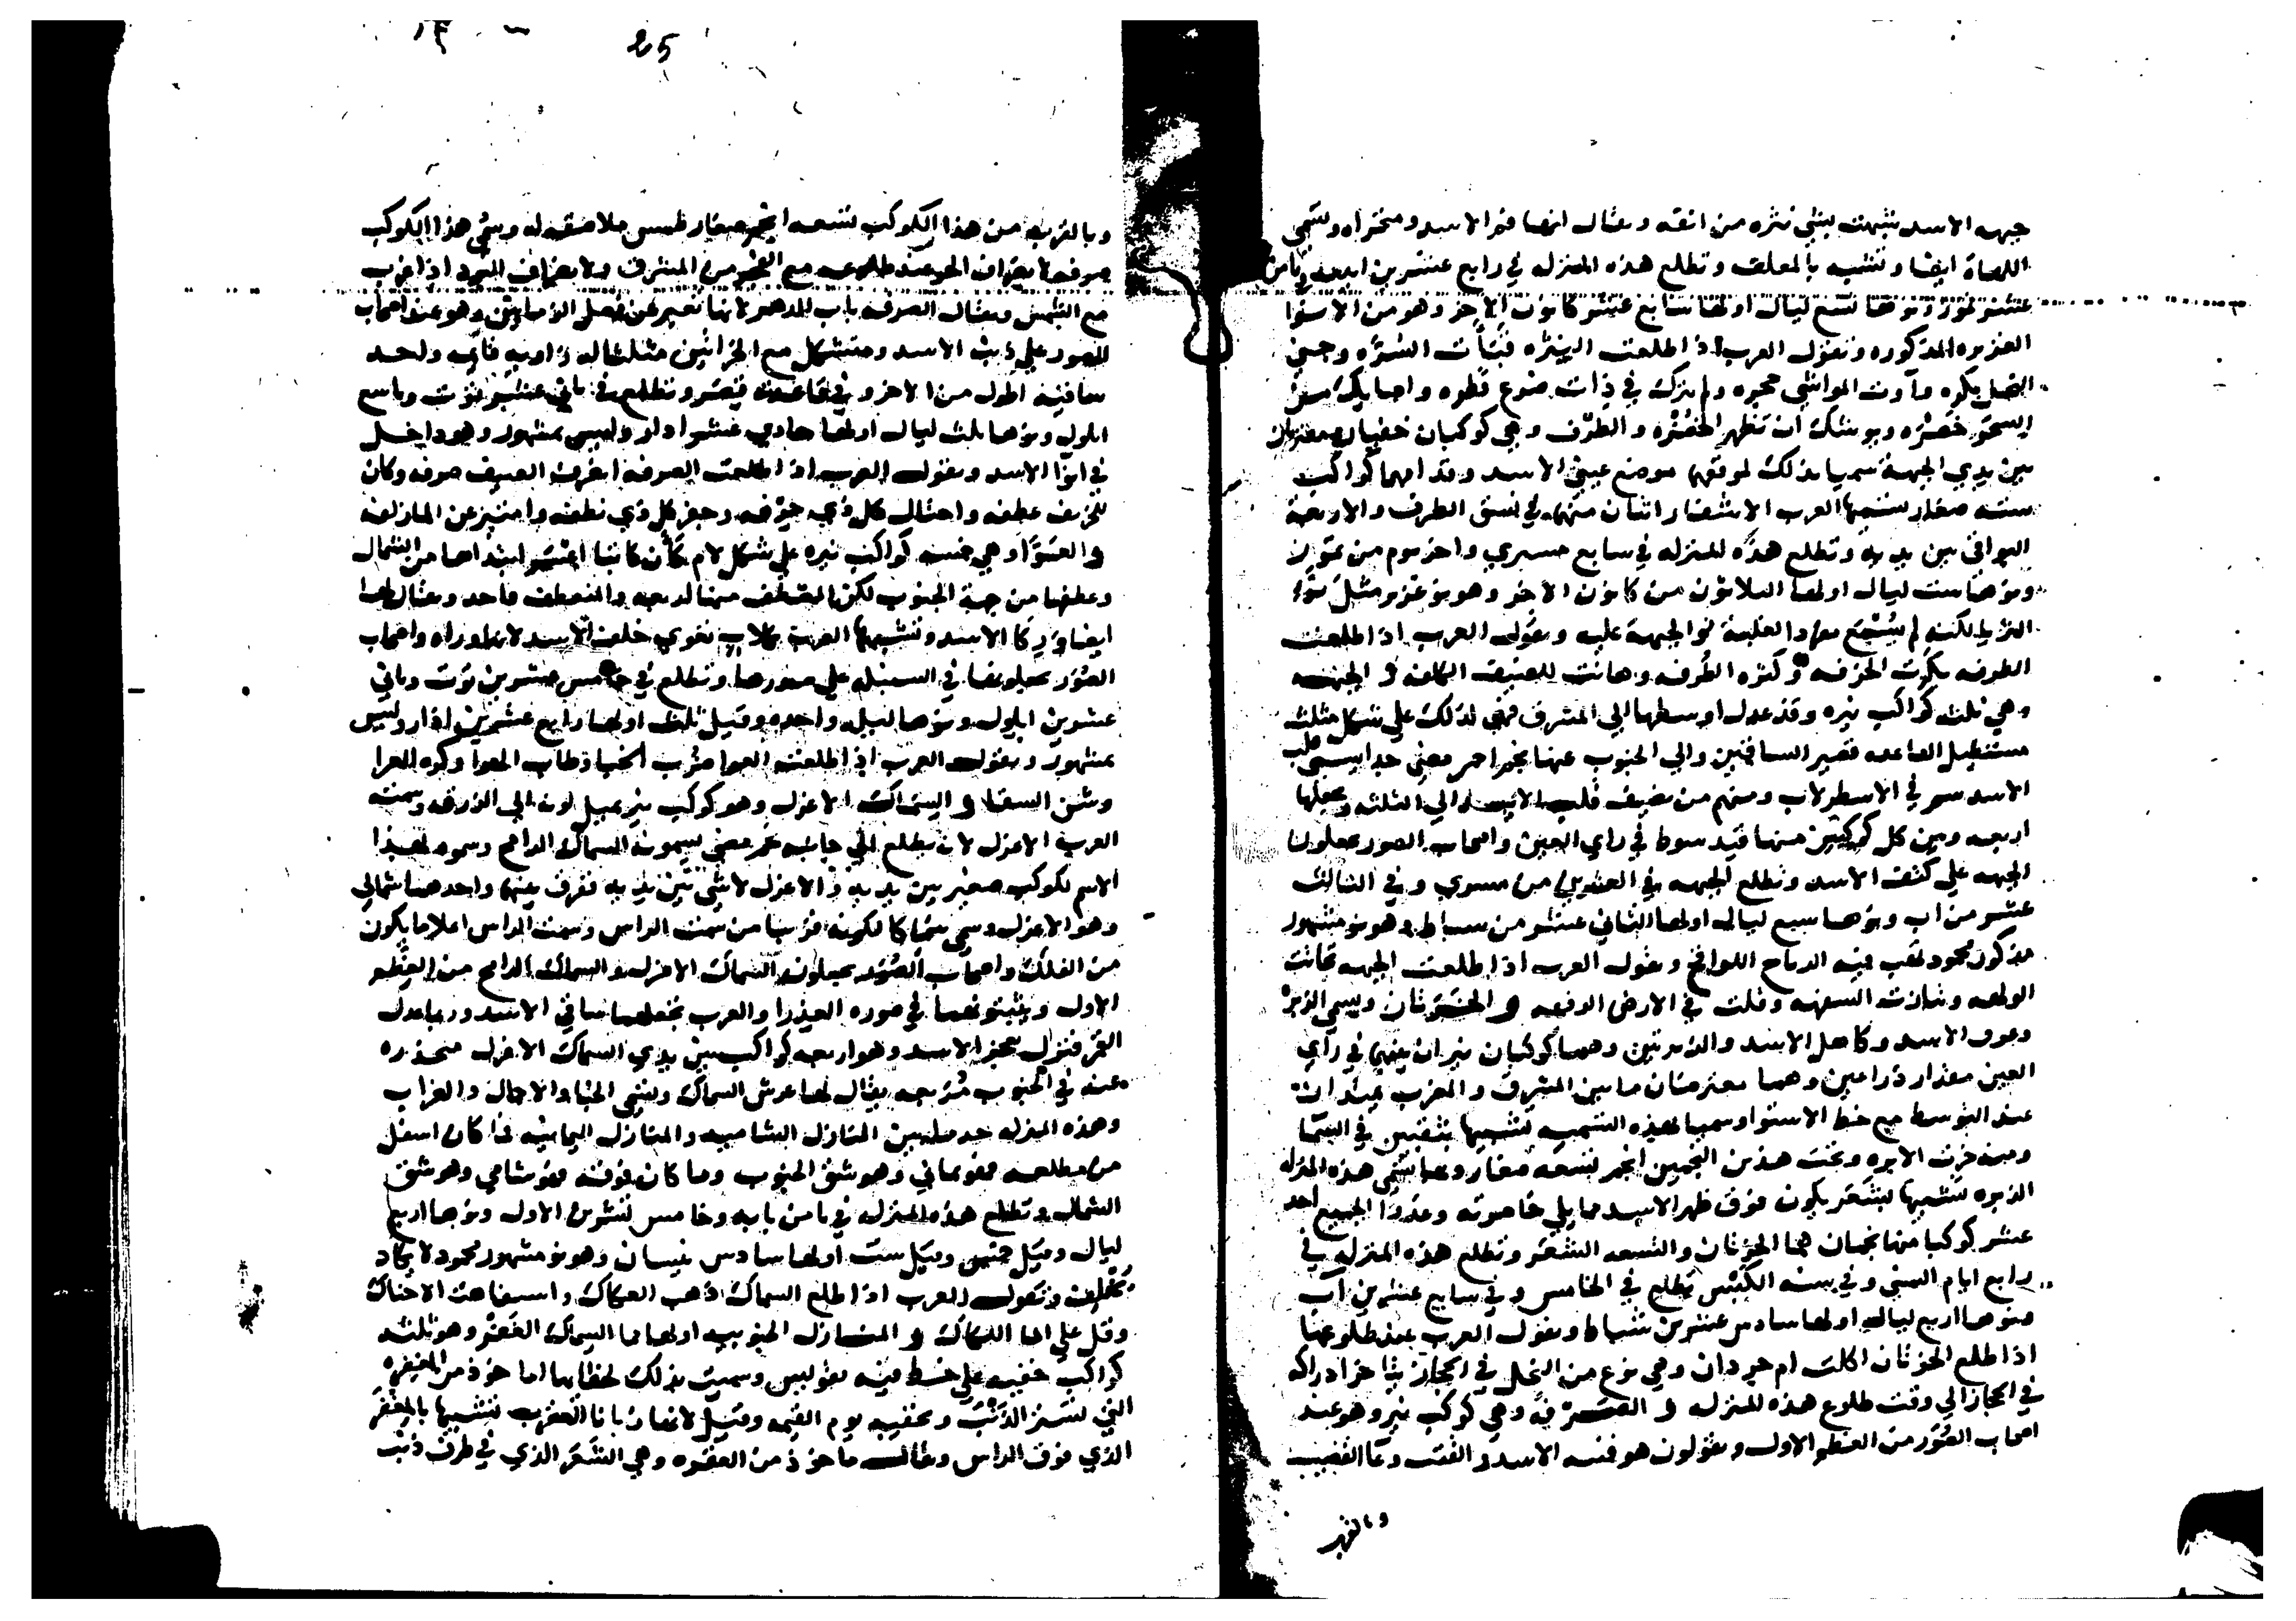 جبهه الاسد شبهت بشي نثره من انفه ويقال انها فم الاسد ومنخراه وتسمى
اللهاة ايضا وتشبه بالمعلف وتطلع هذه المنزله في رابع عشرين ابيب وثامن
عشر تموز ونوها سبع ليال اولها سابع عشر كانون الاخر وهو من الانوا
الغزيره المذكوره وتقول العرب اذا طلعت النثره قنأت البسره وجني
النخل بكره وآوت المواشي حجره ولم يترك في ذات ضرع قطره
خضره ويوشك ان تظهر الخضره والطرف وهي كوكبان خفيان مقترنان
بين يدي الجبهة سميا بذلك لموقعهما موضع عيني الاسد وقدامهما كواكب
سته صغار تسميها العرب الاشفار اثنان منها في نسق الطرف والاربعة
البواقي بين يديه وتطلع هذه المنزله في سابع مسري واخر يوم من تموز
ونوها ست ليال اولها الثلاثون من كانون الاخر وهو نو غزير مثل نوء
الثريا لكنه لم يسمع مفردا لغلبة نو الجبهة عليه وتقول العرب اذا طلعت
الطرفه بكرت الخرفه وكثره الطرفه وهانت للضيف الكلفه و الجبهه
وهي ثلث كواكب نيره وقد عدل اوسطها الى المشرف فهي لذلك على شكل مثلث
مستطيل القاعده قصير الساقين والي الجنوب عنها نجم احمر مضي جدا يسمى قلب
الاسد يرسم في الاسطرلاب ومنهم من يضيف قلب الاسد الي الثلثه ويجعلها
اربعه وبين كل كوكبين منها قيد سوط في راي العين واصحاب الصور يجعلون
الجبهه على كتف الاسد وتطلع الجبهه في العشرين من مسري وفي الثالث
عشر من اب ونوها سبع ليال اولها الثاني عشر من سباط وهو نو مشهور
مذكور محمود تهب فيه الرياح اللواقح وتقول العرب اذا طلعت الجبهه تحانت
الولهه وتنازت السفهه وقلت في الارض الرفهه و الخرتان ويسمى الزبره
وعرف الاسد وكاهل الاسد والزبرتين وهما كوكبان نيران بينهما في راي
العين مقدار ذراعين وهما معترضان ما بين المشرق والمغرب
عند التوسط مع خط الاستوا وسميا بهذه التسميه تشبيها بثقبين في السما
ومنه خرت الابره وتحت هذين النجمين انجم تسعه صغار وبها تسمى هذه المنزله
الزبره تشبيها بشعر يكون فوق ظهر الاسد مما يلي خاصرته وعددا الجميع احد
عشر كوكبا منها نجمان هما الخرتان والتسعه الشعر وتطلع هذه المنزله في
رابع ايام النسي وفي سنه الكبس تطلع في الخامس وفي سابع عشرين آب
ونوها اربع ليال اولها سادس عشرين شباط وتقول العرب عند طلوعها
اذا طلع الخرتان اكلت ام جردان وهي نوع من النخل في الحجاز يتاخر ادراكه
في الحجاز الى وقت طلوع هذه المنزله و الصرفه وهي كوكب نير وهو عند
اصحاب الصور من العظم الاول ويقولون هو قنب الاسد والقنب وعا القضيب
وبالقرب
25
وبالقرب من هذا الكوكب تسعه انجم صغار طمس ملاصقه له وسمي هذا الكوكب
صرفه لانصراف الحر عند طلوعه مع الفجر من المشرق ولانصراف البرد اذا غرب
مع الشمس ويقال الصرفه باب الدهر لانها تفتر عن فصل الزمانين وهو عند اصحاب
الصور على ذنب الاسد ويتشكل مع الخراتين مثلثا له زاويه قايمه واحد
ساقيه اطول من الاخر وفي قاعدته قصر وتطلع في ثاني عشر توت وتاسع
ايلول ونوها ثلث ليال اولها حادي عشر اذار وليس بمشهور وهو داخل
في انوا الاسد وتقول العرب اذا طلعت الصرفه انصرف الصيف صرفه وكان
للخريف عطفه واحتال كل ذي حرفه وجفر كل ذي نطفه وامتيز عن المياه زلفه
و العوا وهي خمسه كواكب نيره على شكل لام كأن كاتبا ابتداها من الشمال
وعطفها من جهة الجنوب لكن المصطف منها اربعه والمنعطف واحد ويقال لها
ايضا وركا الاسد وتشبهها العرب بكلاب تعوي خلف الاسد لانها وراه واصحاب
الصور يجعلونها في السنبله على صدرها وتطلع في خامس عشرين توت وثاني
عشرين ايلول ونوها ليله واحده وقيل ثلث اولها رابع عشرين اذار وليس
بمشهور وتقول العرب اذا طلعت العوا ضرب الخبا وطاب الهوا وكره العرا
وشن السقا و السماك الاعزل وهو كوكب نير يميل لونه الى الزرقه وسمته
العرب الاعزل لانه يطلع الي جانبه نجم مضي يسمونه السماك الرامح وسموه بهذا
الاسم لكوكب صغير بين يديه والاعزل لا شي بين يديه ففرق بينهما واحدهما شمالي
وهو الاعزل وسمي سماكا لكونه قريبا من سمت الراس وسمت الراس اعلا ما يكون
من الفلك واصحاب الصور يجعلون السماك الاعزل والسماك الرامح من العظم
الاول ويثبتونهما في صوره العذرا والعرب تجعلهما ساقي الاسد وربما عدل
القمر فنزل بعجز الاسد وهو اربعه كواكب بين يدي السماك الاعزل منحدره
عنه في الجنوب مربعه يقال لها عرش السماك وتسمى الخبا والاحمال والغراب
وهذه المنزله حد ما بين المنازل الشاميه والمنازل اليمانيه فما كان اسفل
من مطلعه فهو يماني وهو شق الجنوب وما كان فوقه فهو شامي وهو شق
الشمال وتطلع هذه المنزله في ثامن بابه وخامس تشرين الاول ونوها اربع
ليال وقيل خمس وقيل ست اولها سادس نيسان وهو نو مشهور محمود لا يكاد
يخلف وتقول العرب اذا طلع السماك ذهب العكاك واستفاهت الاحناك
وقل على الما اللكاك و المنازل الجنوبيه اولها مما السماك الغفر وهو ثلثه
كواكب خفيه على خط فيه تقويس وسميت بذلك لخفايها اما خوذ من المغفره
التي تستر الذنب وتخفيه يوم القيمه وقيل لانها زبانا العقرب تشبيها بالمغفر
الذي فوق الراس ويقال ماخوذ من الغفره وهي الشعر الذي في طرف ذنب